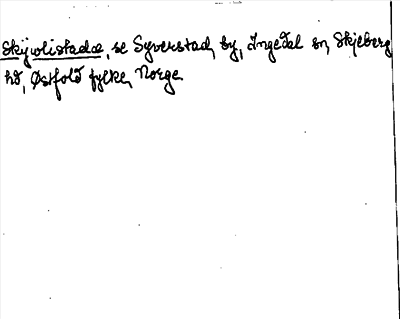 Skijwlistadæ, se Syverstad, by, Ingedal sn, Skjeberg
hd, Østfold fylke, Norge